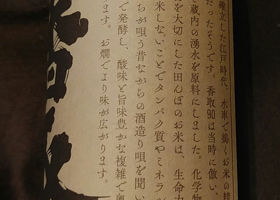 確立した江戸時代、水車で搗くお米の精
だったそうです。香取90は当時に倣い、
蔵内の湧水を原料にしました。化学物
を大切にした田んぼのお米は、生命力
米しないことでタンパク質やミネラ
ちが唄う昔ながらの酒造り唄を聞い
て発酵し、酸味と旨味豊かな複雑で奥
ます。お燗でより味が広がります。